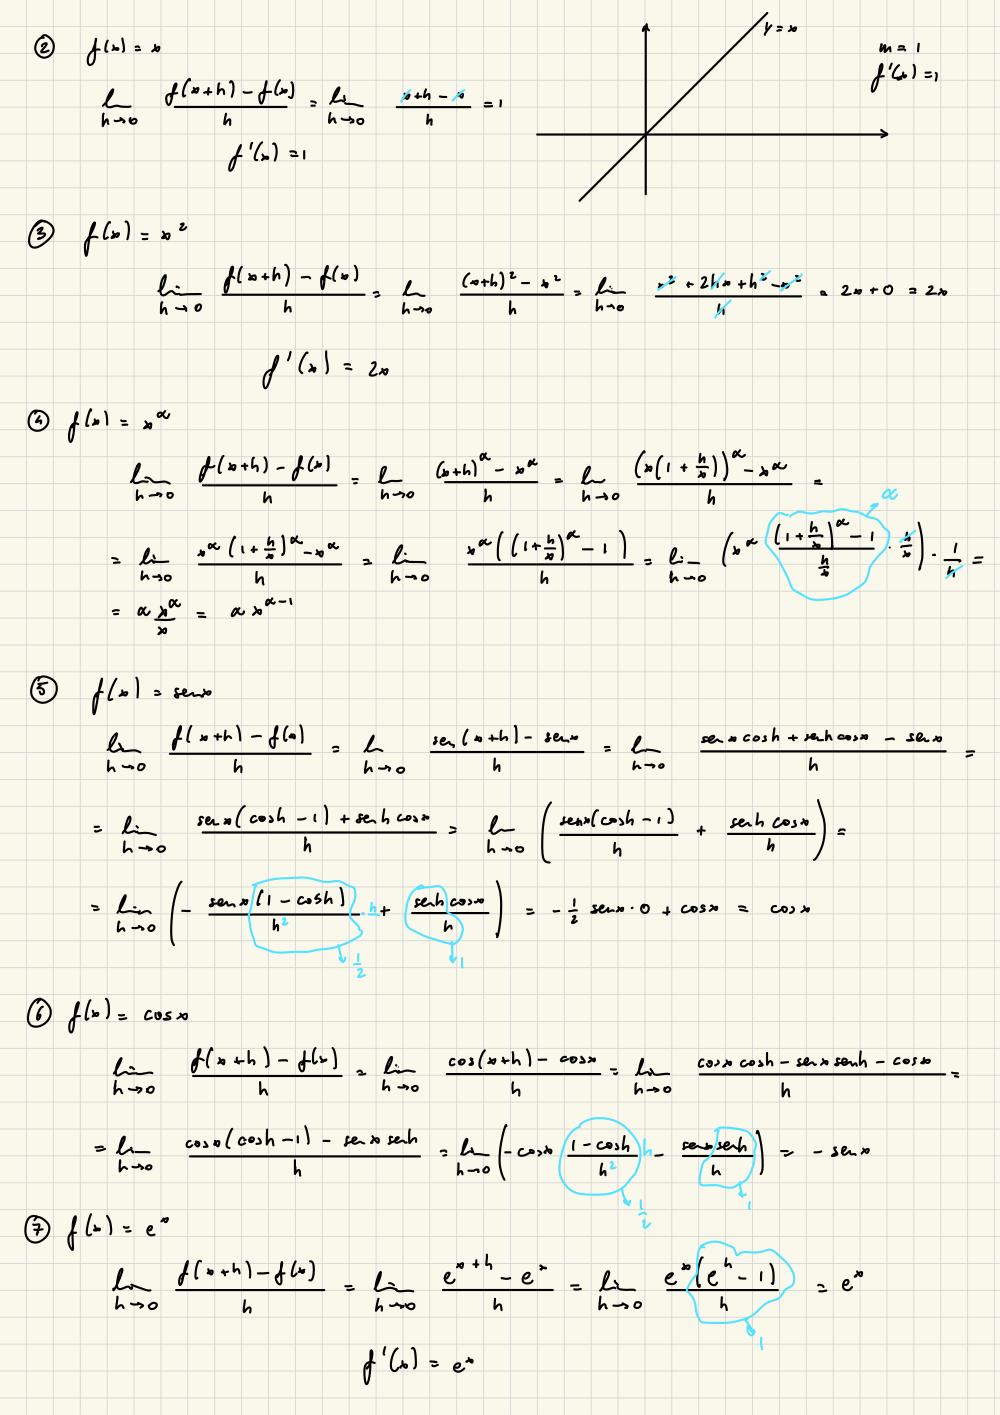 ② f(x) = x
y = x
m = 1
f'(x) = 1
lim h→0 (f(x+h) − f(x))/h = lim h→0 (x+h − x)/h = 1
f'(x) = 1
③ f(x) = x²
lim h→0 (f(x+h) − f(x))/h = lim h→0 ((x+h)² − x²)/h = lim h→0 (x² + 2hx + h² − x²)/h = 2x + 0 = 2x
f'(x) = 2x
④ f(x) = x^α
lim h→0 (f(x+h) − f(x))/h = lim h→0 ((x+h)^α − x^α)/h = lim h→0 ((x(1 + h/x))^α − x^α)/h =
α
= lim h→0 (x^α (1 + h/x)^α − x^α)/h = lim h→0 (x^α ((1 + h/x)^α − 1))/h = lim h→0 (x^α ((1 + h/x)^α − 1)/(h/x) · h/x) · 1/h =
= α x^α/x = α x^(α−1)
⑤ f(x) = senx
lim h→0 (f(x+h) − f(x))/h = lim h→0 (sen(x+h) − senx)/h = lim h→0 (senx cosh + senh cosx − senx)/h =
= lim h→0 (senx(cosh − 1) + senh cosx)/h = lim h→0 ((senx(cosh − 1))/h + (senh cosx)/h) =
= lim h→0 (− (senx(1 − cosh))/h² · h + (senh cosx)/h) = − 1/2 senx · 0 + cosx = cosx
1/2 1
⑥ f(x) = cosx
lim h→0 (f(x+h) − f(x))/h = lim h→0 (cos(x+h) − cosx)/h = lim h→0 (cosx cosh − senx senh − cosx)/h =
= lim h→0 (cosx(cosh − 1) − senx senh)/h = lim h→0 (−cosx (1 − cosh)/h² h − (senx senh)/h) = − senx
1/2 1
⑦ f(x) = e^x
lim h→0 (f(x+h) − f(x))/h = lim h→0 (e^(x+h) − e^x)/h = lim h→0 (e^x (e^h − 1))/h = e^x
1
f'(x) = e^x